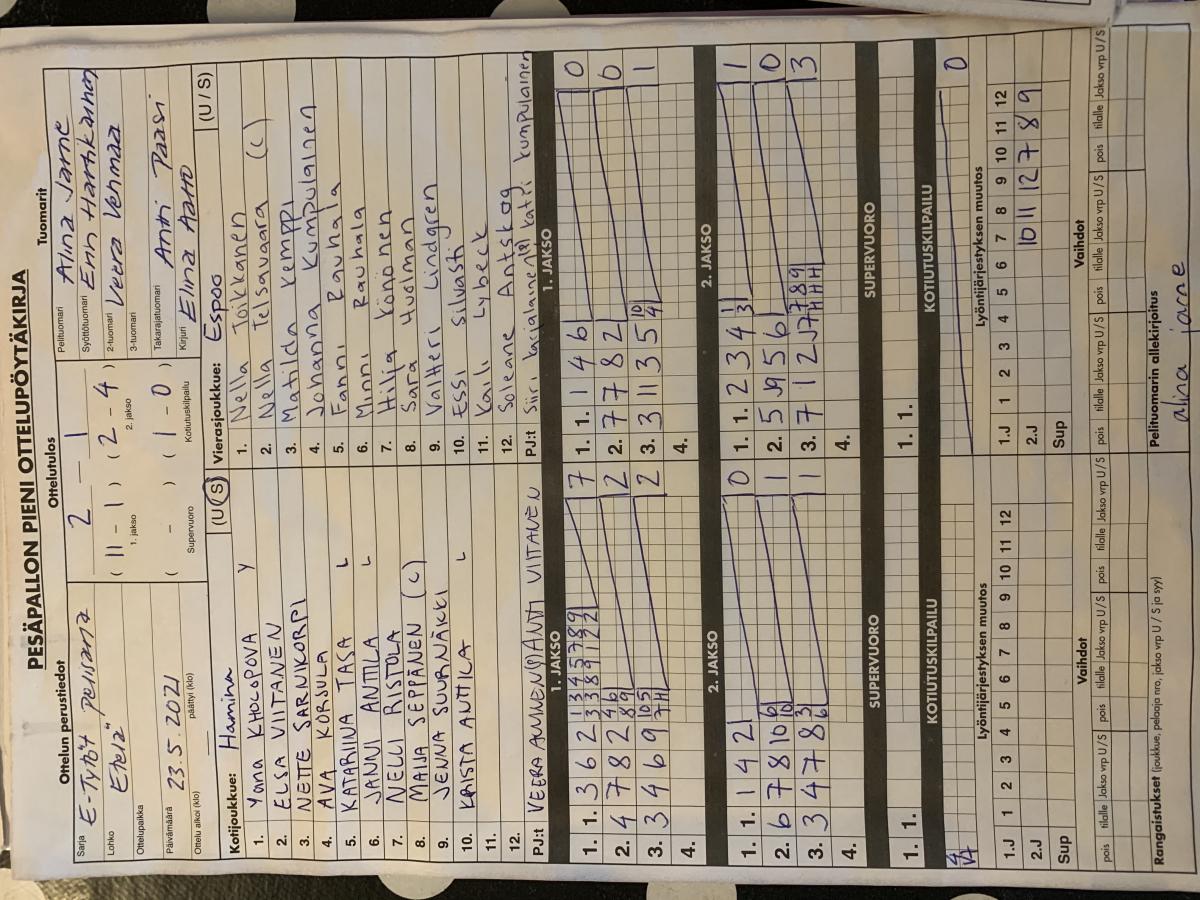 PESÄPALLON PIENI OTTELUPÖYTÄKIRJA
Ottelun perustiedot
Sarja E-Tytöt pelisarja
Lohko Etelä
Ottelupaikka
Päivämäärä 23.5.2021
Ottelu alkoi (klo) päättyi (klo)
Ottelutulos
2 - 1
( 11 - 1 ) ( 2 - 4 )
1. jakso 2. jakso
( - ) ( 1 - 0 )
Supervuoro Kotiutuskilpailu
Tuomarit
Pelituomari Alina Jarne
Syöttötuomari
2-tuomari Veera Vehmaa
3-tuomari
Takarajatuomari Antti Paasi
Kirjuri Elina Aalto
Kotijoukkue: Hamina (U/S)
1. Yana KHOLOPOVA Y
2. ELSA VIITANEN
3. NETTE SARNIKORPI
4. AVA KORSULA
5. KATARIINA TASA L
6. JANNI ANTTILA L
7. NELLI RISTOLA
8. MAIJA SEPPÄNEN (C)
9. JENNA SUURNÄKKI
10. KRISTA ANTTILA L
11.
12.
PJ:t VEERA AUVINEN ANTTI VIITANEN
Vierasjoukkue: Espoo (U/S)
1. Nella Toikkanen
2. Nella Telsavaara (C)
3. Matilda Kemppi
4. Johanna Kumpulainen
5. Fanni Rauhala
6. Minni Rauhala
7. Hilja Könönen
8. Sara Huolman
9. Valtteri Lindgren
10. Essi Silvasti
11. Kaili Lybeck
12. Soleane Antskog
PJ:t Siiri Katri Kumpulainen
1. JAKSO
1. 1. 3 6 2 1 3 4 5 7 8 9 7
3 3 8 9 1 2 2
2. 4 7 8 2 4 6 2
8 9
3. 3 4 6 9 10 5 2
7 H
4.
1. JAKSO
1. 1. 1 4 6 0
2. 7 7 8 2 0
3. 3 11 3 5 10 1
4
4.
2. JAKSO
1. 1. 1 4 2 0
2. 6 7 8 10 6 1
10
3. 3 4 7 8 3 1
6
4.
2. JAKSO
1. 1. 2 3 4 1 1
3
2. 5 J9 5 6 0
3. 7 1 2 J7 7 8 9 3
H H H
4.
SUPERVUORO
1. 1.
SUPERVUORO
1. 1.
KOTIUTUSKILPAILU
4
KOTIUTUSKILPAILU
0
Lyöntijärjestyksen muutos
1.J 1 2 3 4 5 6 7 8 9 10 11 12
2.J
Sup
Lyöntijärjestyksen muutos
1.J 1 2 3 4 5 6 7 8 9 10 11 12
2.J 10 11 12 7 8 9
Sup
Vaihdot
pois tilalle Jakso vrp U/S pois tilalle Jakso vrp U/S pois tilalle Jakso vrp U/S
Vaihdot
pois tilalle Jakso vrp U/S pois tilalle Jakso vrp U/S pois tilalle Jakso vrp U/S
Rangaistukset (joukkue, pelaaja nro, jakso vrp U / S ja syy)
Pelituomarin allekirjoitus
alina jarne